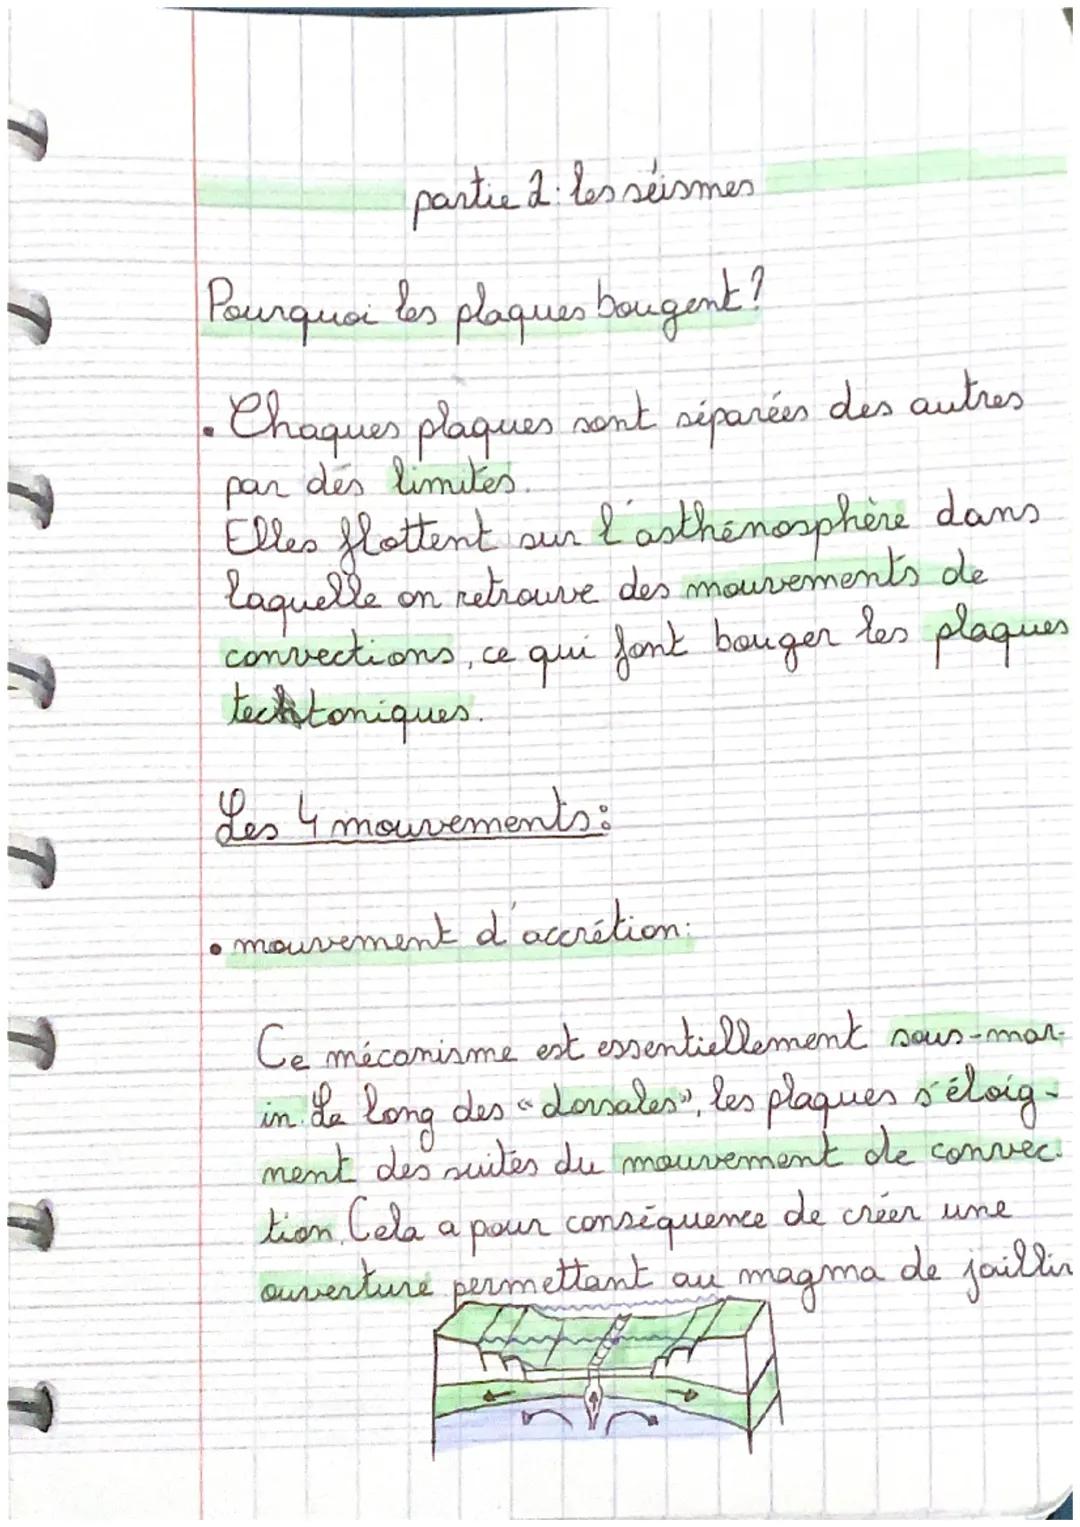 partie 2: les séismes
Pourquoi les plaques bougent?
• Chaques plaques sont séparées des autres
par des limites.
Elles flottent sur l'asthénosphère dans
laquelle on retrouve des mouvements de
convections, ce qui font bouger les plaques
tectoniques.
Les 4 mouvements:
• mouvement d'accrétion:
Ce mécanisme est essentiellement sous-mar-
in. Le long des "dorsales", les plaques s'éloig-
nent des suites du mouvement de convec-
tion. Cela a pour conséquence de créer une
ouverture permettant au magma de jaillir